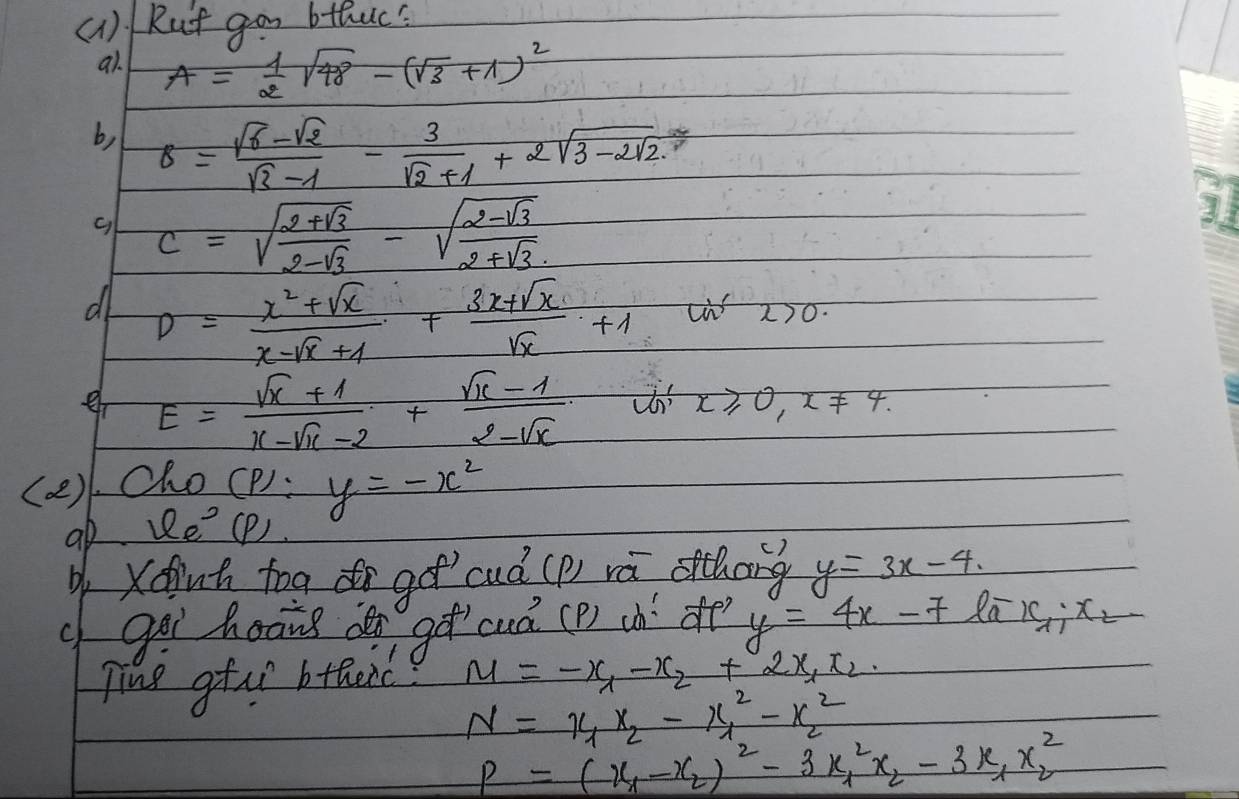 (1). Rút gọn bthức:
a). A = 1/2 √48 - (√3 + 1)²
b, B = (√6 - √2)/(√3 - 1) - 3/(√2 + 1) + 2√(3 - 2√2).
c, C = √((2 + √3)/(2 - √3)) - √((2 - √3)/(2 + √3)).
d, D = (x² + √x)/(x - √x + 1) + (3x + √x)/√x + 1 với x > 0.
e, E = (√x + 1)/(x - √x - 2) + (√x - 1)/(2 - √x) với x ≥ 0, x ≠ 4.
(2). Cho (P): y = -x²
a). Vẽ (P).
b, Xđịnh tọa độ gđ' của (P) và đthẳng y = 3x - 4.
c) gọi hoành độ gđ' của (P) với đt' y = 4x - 7 là x₁; x₂
Tính gtrị bthức: M = -x₁ - x₂ + 2x₁x₂.
N = x₁x₂ - x₁² - x₂²
P = (x₁ - x₂)² - 3x₁²x₂ - 3x₁x₂²